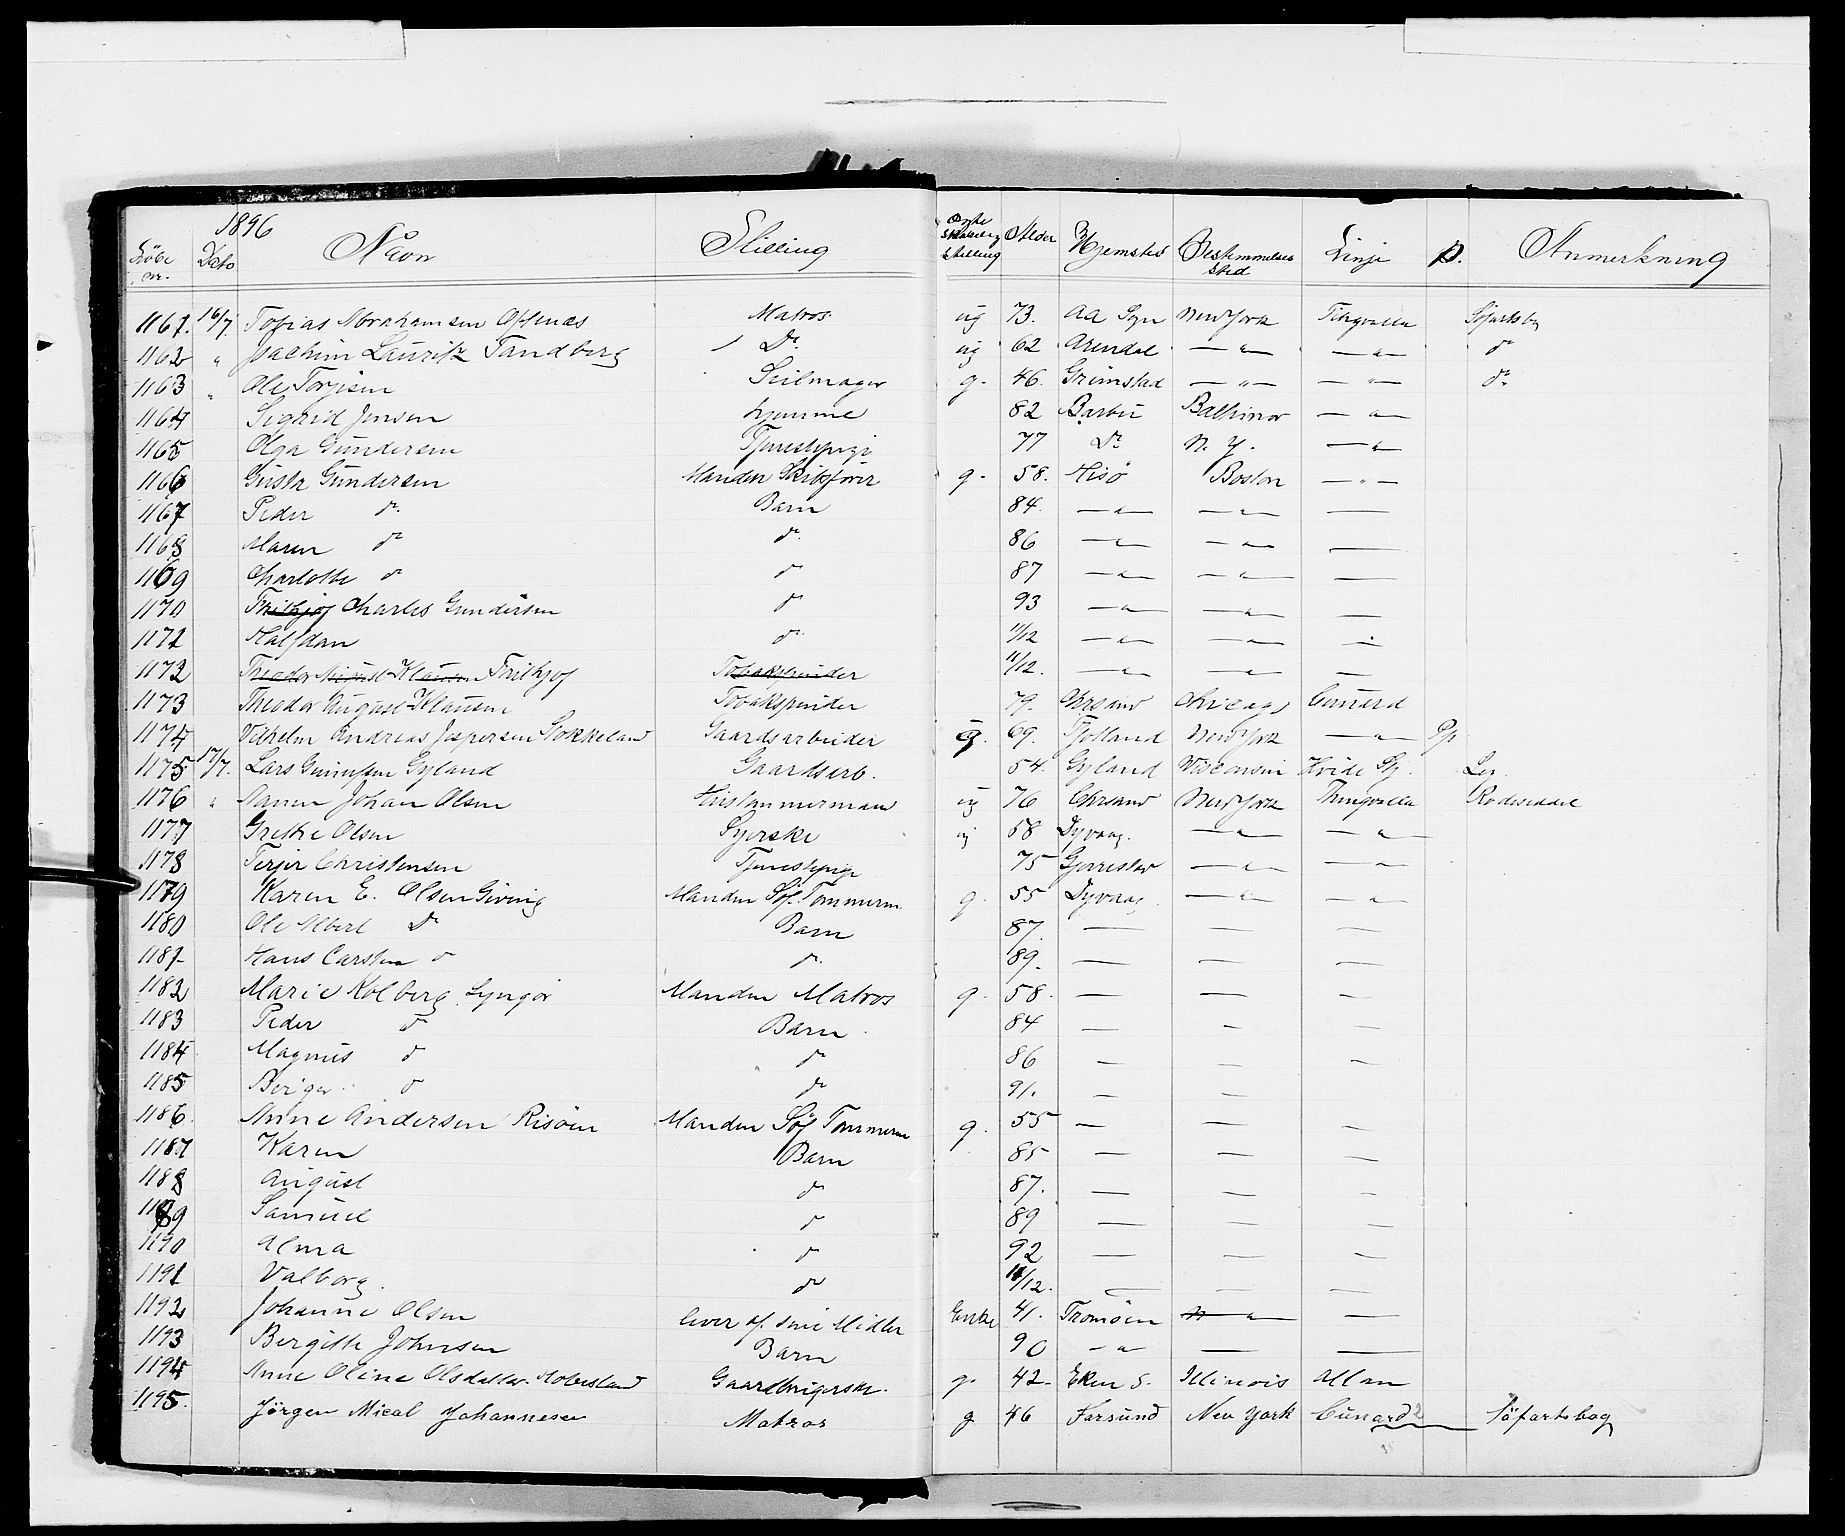 1896
Löbe nr. Dato Navn Stilling Alder Hjemsted Bestemmelses Sted Linje P. Anmerkning
1161. 16/7. Tobias Abrahamsen Matros ug 73. Aa Sogn New York Thingvalla Söfartsb
1162 " Joachim Lauritz Tandberg Do ug 62 Arendal — " — — " — do
1163 " Ole Torjisen Seilmager g. 46. Grimstad — " — — " — do
1164 Sigrid Jensen hjemme 82 Barbu Baltimor — " —
1165 Olga Gundersen Tjenestepige 77 Do N. Y. — "
1166 Gusta Gundersen Manden Skibsförer g. 58. Hisö Boston — " —
1167 Peder do Barn 84. — " — — " — —
1168 Maren do do 86 — " — — " — —
1169 Charlotte do do 87 — " — — " — —
1170 Frithjof Charles Gundersen do 93 — " — — " — —
1171 Halfdan do 11/12 — " — — " — —
1172 Theodor Klausen Frithjof Tobakspinder 11/12. — " — — " — —
1173 Theodor August Klausen Tobakspinder 79. Chrsand Chicago Cunard
1174 Vilhelm Andreas Jespersen Gaardsarbeider g. 69. Fjotland New York — " —
1175 17/7. Lars Gyland Gaardsarb. 54. Gyland Wisconsin Hvide Stj.
1176 " Johan Olsen Hustømmermand ug 76 Chrsand New York Thingvalla Rodeseddel
1177 Grethe Olsen Syerske ug 58 Dyvaag. — " — — " —
1178 Terjer Christensen Tjenestepige 75 — " — — " —
1179 Karen E. Olsen Giving Manden Söf. Tömmerm. g. 55 Dyvaag. — " — — " —
1180 Ole Albert Do Barn 87. — — —
1181 Hans Carsten do do. 89. — — —
1182 Marie Kolberg Lyngör Manden Matros g. 58. — — —
1183 Peder do Barn 84 — — —
1184 Magnus do do 86 — — —
1185 Berger do do 91. — — —
1186 Anne Andersen Risöen Manden Söf Tömmerm g. 55 — — —
1187 Karen Barn 85 — — —
1188 August do 87. — — —
1189 Samuel do 89 — — —
1190 Alma do 92 — — —
1191 Valborg. do 11/12. — — —
1192 Johanne Olsen lever af sine Midler Enke 41. Tromöen — " — —
1193 Bergithe Johnsen Barn 90 — " — —
1194 Anne Oline Olsdatter Gaardbrugerske. g. 42. Eken S. Illinois Allan
1195. Jörgen Mical Johannesen Matros g 46 Farsund New York Cunard Söfartsbog